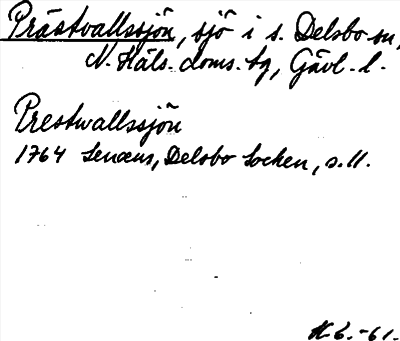 Prästvallssjön, sjö i s. Delsbo sn,
N. Häls. doms. tg, Gävl. l.
Prestwallssjön
1764 Lenæus, Delsbo Socken, s. 11.
H.C. -61.